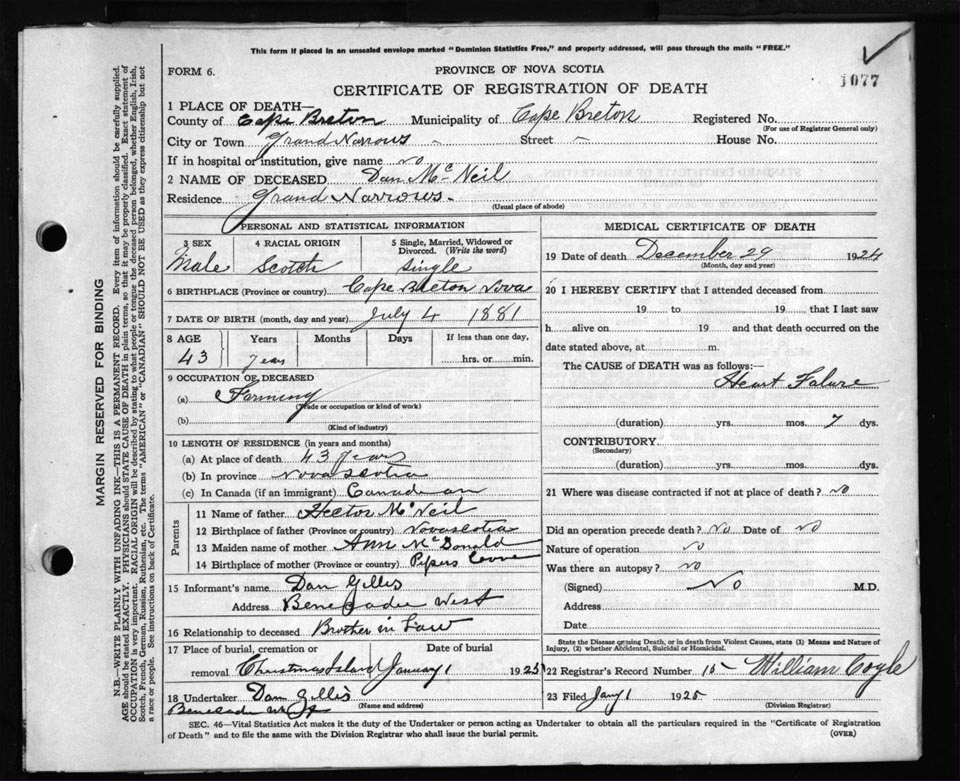 This form if placed in an unsealed envelope marked "Dominion Statistics Free," and properly addressed, will pass through the mails "FREE."
FORM 6.
PROVINCE OF NOVA SCOTIA
1077
CERTIFICATE OF REGISTRATION OF DEATH
1 PLACE OF DEATH—
County of Cape Breton Municipality of Cape Breton Registered No.
(For use of Registrar General only)
City or Town Grand Narrows - Street - House No.
If in hospital or institution, give name no
2 NAME OF DECEASED Dan McNeil
Residence Grand Narrows.
(Usual place of abode)
PERSONAL AND STATISTICAL INFORMATION
3 SEX 4 RACIAL ORIGIN 5 Single, Married, Widowed or Divorced. (Write the word)
Male Scotch Single
6 BIRTHPLACE (Province or country) Cape Breton Nova
7 DATE OF BIRTH (month, day and year) July 4 1881
8 AGE Years Months Days If less than one day,
43 years hrs. or min.
9 OCCUPATION OF DECEASED
(a) Farming
(Trade or occupation or kind of work)
(b)
(Kind of industry)
10 LENGTH OF RESIDENCE (in years and months)
(a) At place of death 43 years
(b) In province Novascotia
(c) In Canada (if an immigrant) Canadean
Parents
11 Name of father Hector McNeil
12 Birthplace of father (Province or country) Novascotia
13 Maiden name of mother Ann McDonald
14 Birthplace of mother (Province or country) Pipers Cove
15 Informant's name Dan Gillis
Address Benecadie West
16 Relationship to deceased Brother in Law
17 Place of burial, cremation or removal Date of burial
Christmas Island January 1 1925
18 Undertaker Dan Gillis
(Name and address)
Benecadie
MEDICAL CERTIFICATE OF DEATH
19 Date of death December 29 1924
(Month, day and year)
20 I HEREBY CERTIFY that I attended deceased from
19 to 19 that I last saw
h alive on 19 and that death occurred on
date stated above, at m.
The CAUSE of DEATH was as follows:—
Heart Falure
(duration) yrs. mos. 7 dys.
CONTRIBUTORY.
(Secondary)
(duration) yrs. mos. dys.
21 Where was disease contracted if not at place of death? no
Did an operation precede death? No Date of No
Nature of operation no
Was there an autopsy? no
(Signed) No M.D.
Address
Date
State the Disease causing Death, or in death from Violent Causes, state (1) Means and Nature of
Injury, (2) whether Accidental, Suicidal or Homicidal.
22 Registrar's Record Number 15 - William Coyle
23 Filed Jany 1 1925
(Division Registrar)
SEC. 46—Vital Statistics Act makes it the duty of the Undertaker or person acting as Undertaker to obtain all the particulars required in the "Certificate of Registration
of Death" and to file the same with the Division Registrar who shall issue the burial permit.
(OVER)
MARGIN RESERVED FOR BINDING
N.B.—WRITE PLAINLY WITH UNFADING INK—THIS IS A PERMANENT RECORD. Every item of information should be carefully supplied.
AGE should be stated EXACTLY. PHYSICIANS should STATE CAUSE OF DEATH in plain terms, so that it may be properly classified. Exact statement of
OCCUPATION is very important. RACIAL ORIGIN will be described by stating to what people or tongue the deceased person belonged, whether English, Irish,
Scotch, French, German, Russian, Ruthenian, etc. The terms "AMERICAN" or "CANADIAN" SHOULD NOT BE USED as they express citizenship but not
a race or people. See instructions on back of Certificate.